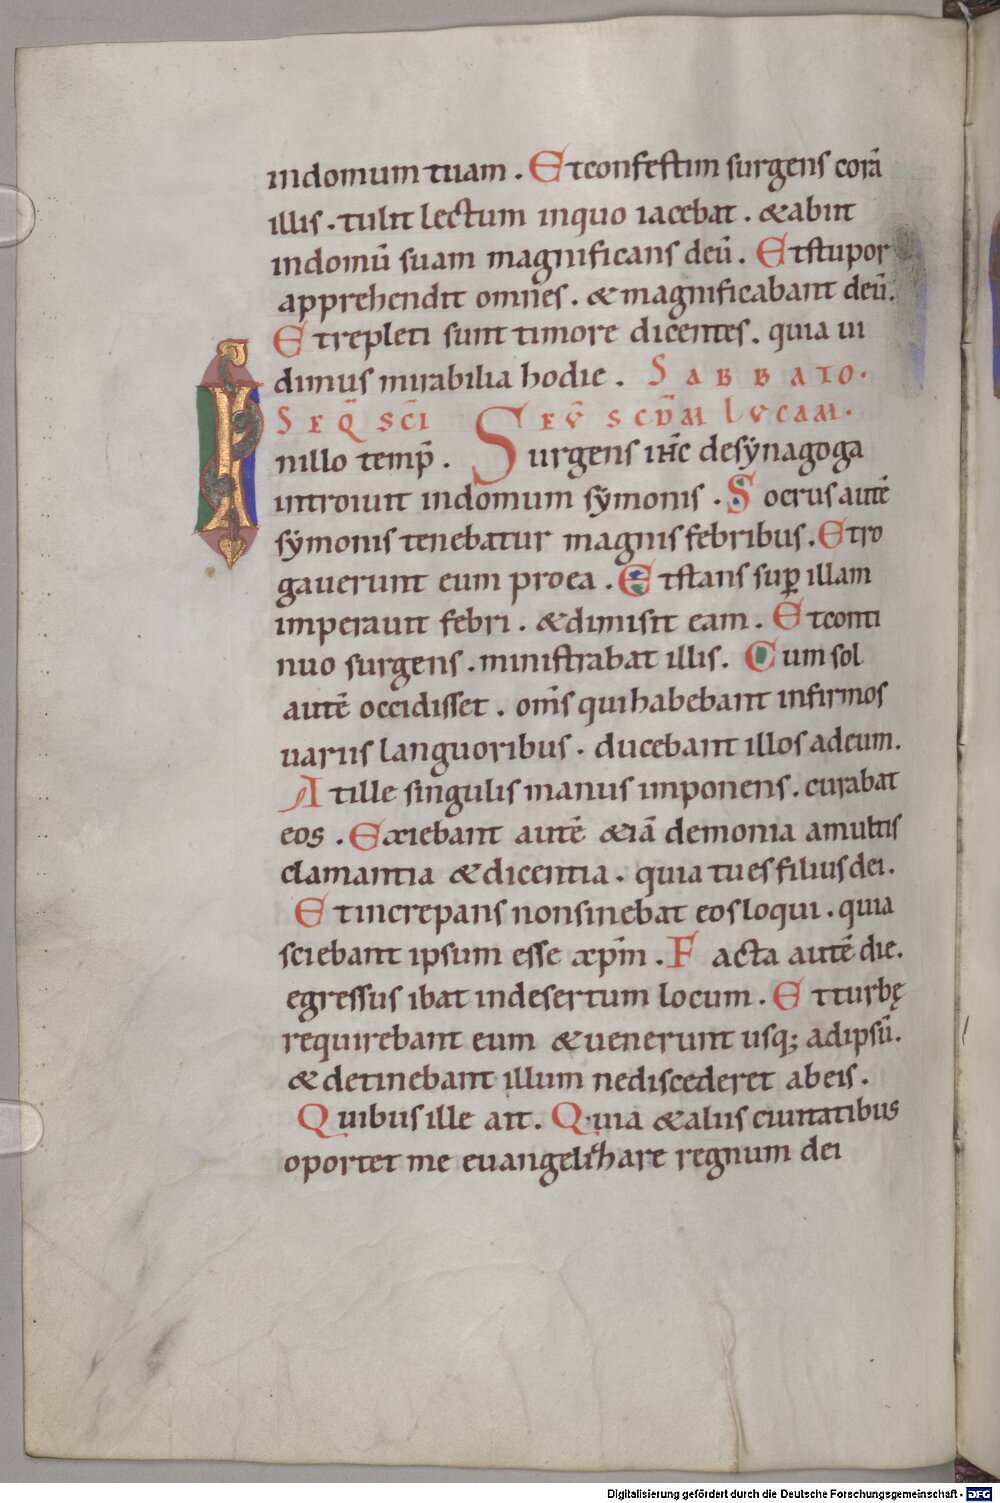 indomum tuam . Etconfestim surgens corā
illis . tulit lectum inquo iacebat . &abiit
indomū suam magnificans deū . Etstupor
apprehendit omnes . & magnificabant deū .
Et repleti sunt timore dicentes . quia ui
dimus mirabilia hodie . SABBATO .
SEQ̄ SC̄I EV̄ SCD̄M LVCAM .
Inillo temp̄ . Surgens ih̄c desẏnagoga
introiuit indomum sẏmonis . Socrus autē
sẏmonis tenebatur magnis febribus . Etro
gauerunt eum proea . Etstans suꝑ illam
imperauit febri . &dimisit eam . Etconti
nuo surgens . ministrabat illis . Cum sol
autē occidisset . om̄s quihabebant infirmos
uariis languoribus . ducebant illos adeum .
At ille singulis manus imponens . curabat
eos . Exiebant autē &iā demonia amultis
clamantia &dicentia . quia tu es filius dei .
Et increpans nonsinebat eos loqui . quia
sciebant ipsum esse xp̄m . Facta autē die .
egressus ibat indesertum locum . Et turbę
requirebant eum &uenerunt usq; adipsū .
&detinebant illum nediscederet abeis .
Quibus ille ait . Quia &aliis ciuitatibus
oportet me euangelizhare regnum dei
Digitalisierung gefördert durch die Deutsche Forschungsgemeinschaft - DFG